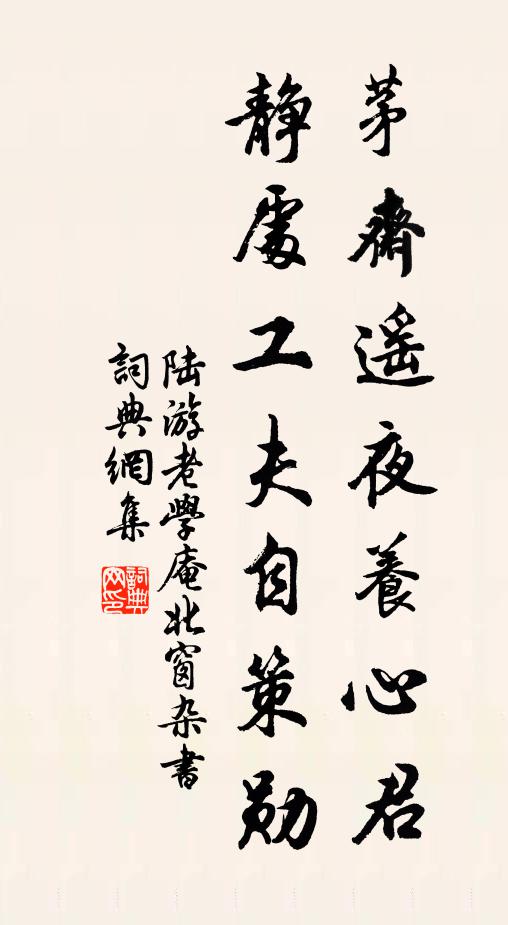 茅齋遥夜養心君
靜處工夫自策勛
陆游老學庵北窗杂書
詞典網集
詞典網印